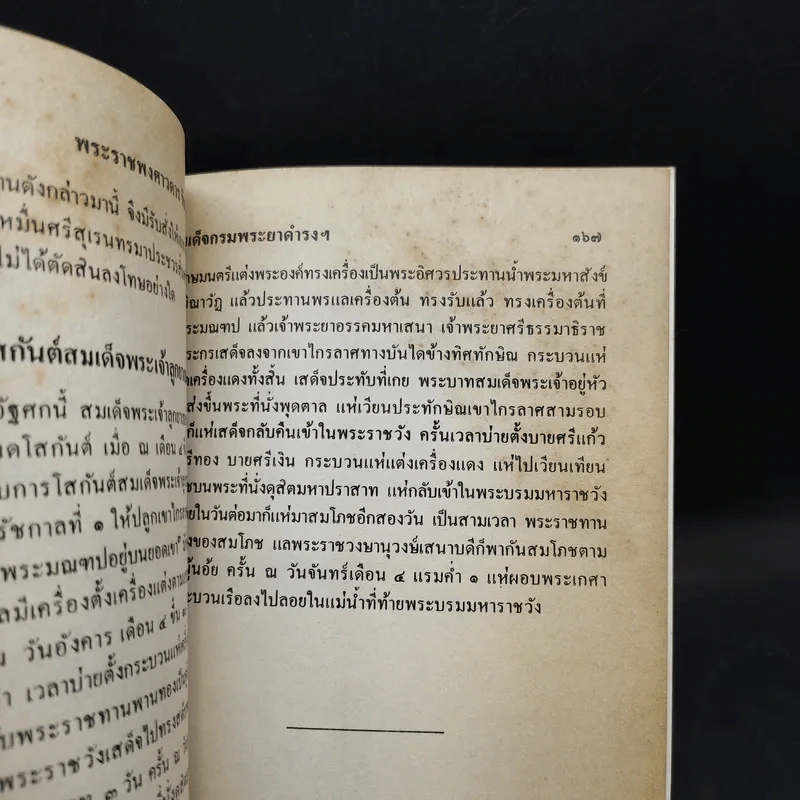 พระราชพงศาวดาร
านดังกล่าวมานี้ จึงมีรับสั่งให้
หมื่นศรีสุเรนทรมาประชวร
ไม่ได้ตัดสินลงโทษอย่างใด
สกันต์สมเด็จพระเจ้าลูก
อัฐศกนี้ สมเด็จพระเจ้าลูกยา
นดโสกันต์ เมื่อ ณ เดือน ๔
บการโสกันต์สมเด็จพระเจ้า
รัชกาลที่ ๑ ให้ปลูกเขาไกรลาศ
พระมณฑปอยู่บนยอดเขา
ลมีเครื่องตั้งเครื่องแต่งตาม
ณ วันอังคาร เดือน ๔ ขึ้น
า เวลาบ่ายตั้งกระบวนแห่
ับพระราชทานพานทองเป็น
พระราชวังเสด็จไปทรง
๓ วัน ครั้น ณ
เด็จกรมพระยาดำรงฯ ๑๖๗
าษมนตรีแต่งพระองค์ทรงเครื่องเป็นพระอิศวรประทานน้ำพระมหาสังข์
ษิณาวัฏ แล้วประทานพรแลเครื่องต้น ทรงรับแล้ว ทรงเครื่องต้นที่
ระมณฑป แล้วเจ้าพระยาอรรคมหาเสนา เจ้าพระยาศรีธรรมาธิราช
ระกรเสด็จลงจากเขาไกรลาศทางบันไดข้างทิศทักษิณ กระบวนแห่
เครื่องแดงทั้งสิ้น เสด็จประทับที่เกย พระบาทสมเด็จพระเจ้าอยู่หัว
ส่งขึ้นพระที่นั่งพุดตาล แห่เวียนประทักษิณเขาไกรลาศสามรอบ
ก็แห่เสด็จกลับคืนเข้าในพระราชวัง ครั้นเวลาบ่ายตั้งบายศรีแก้ว
รีทอง บายศรีเงิน กระบวนแห่แต่งเครื่องแดง แห่ไปเวียนเทียน
ชบนพระที่นั่งดุสิตมหาปราสาท แห่กลับเข้าในพระบรมมหาราชวัง
ยในวันต่อมาก็แห่มาสมโภชอีกสองวัน เป็นสามเวลา พระราชทาน
งของสมโภช แลพระราชวงษานุวงษ์เสนาบดีก็พากันสมโภชตาม
้นอ้ย ครั้น ณ วันจันทร์เดือน ๔ แรมค่ำ ๑ แห่ผอบพระเกศา
ะบวนเรือลงไปลอยในแม่น้ำที่ท้ายพระบรมมหาราชวัง